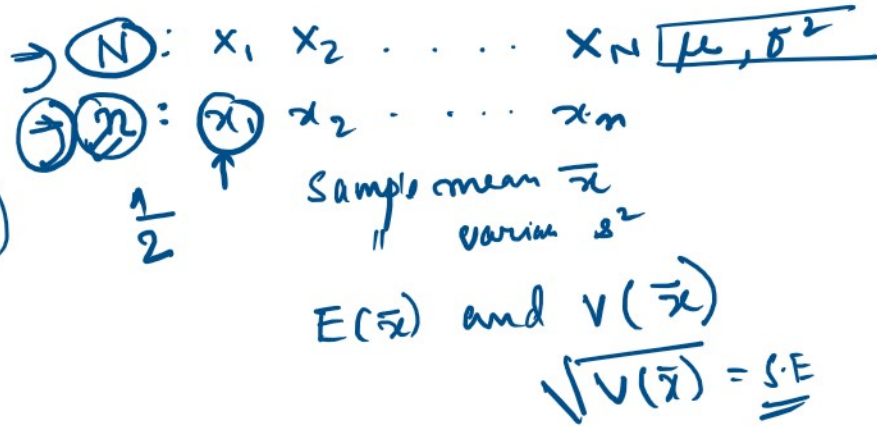 → N : X₁ X₂ . . . . . X_N μ, σ²
→ n : x₁ x₂ . . . . . x_n
1/2
Sample mean x̄
" varian s²
E(x̄) and V(x̄)
√V(x̄) = S.E